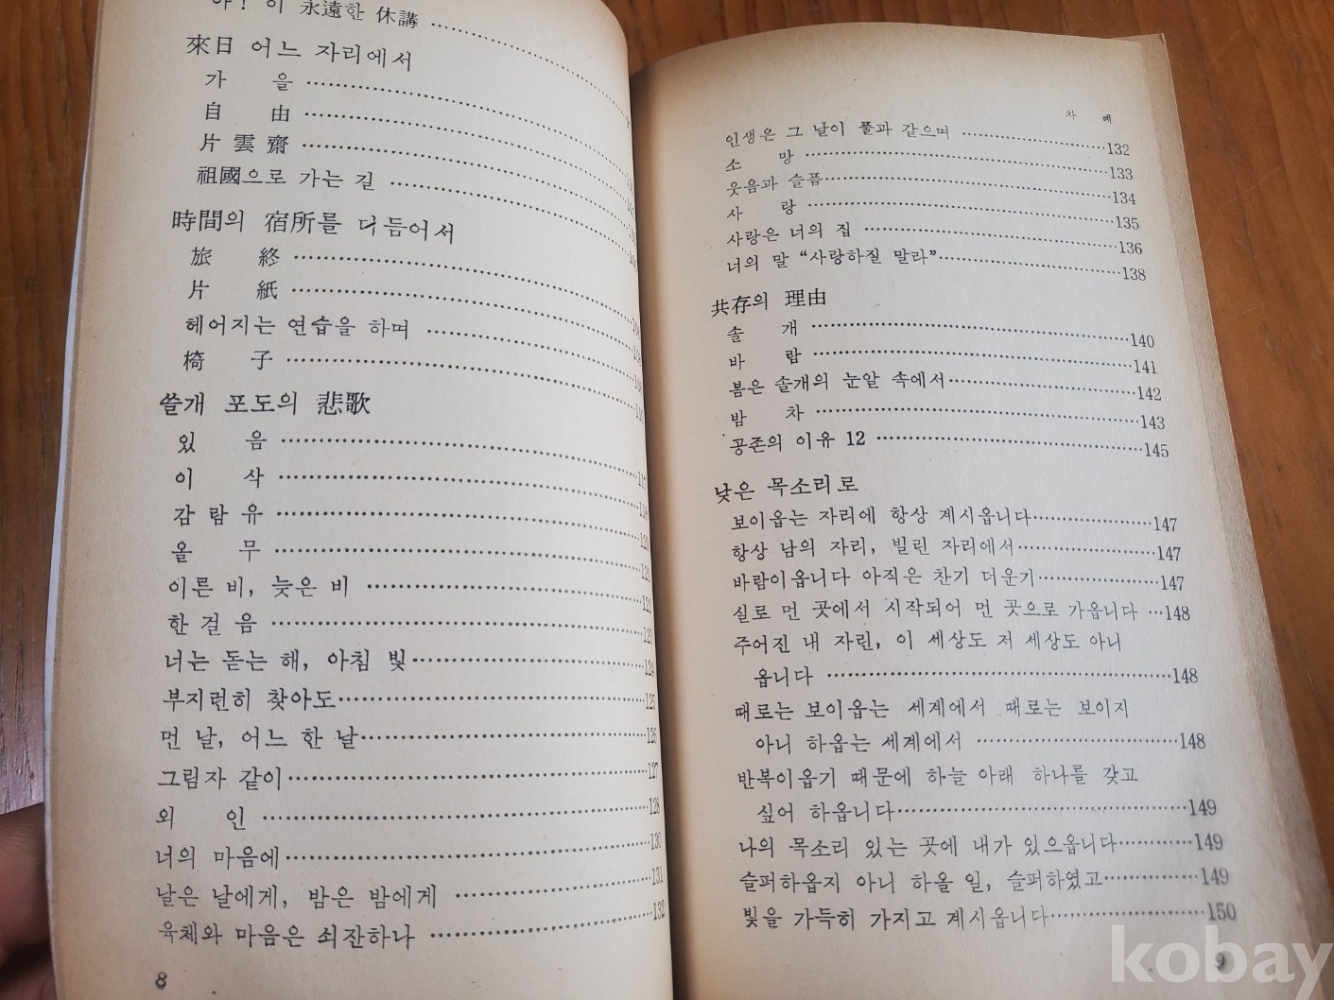 아! 이 永遠한 休講
來日 어느 자리에서
가 을
自 由
片雲齋
祖國으로 가는 길
時間의 宿所를 더듬어서
旅 終
片 紙
헤어지는 연습을 하며
椅 子
쓸개 포도의 悲歌
있 음
이 삭
감람유
올 무
이른 비, 늦은 비
한걸음
너는 돋는 해, 아침 빛 124
부지런히 찾아도 125
먼 날, 어느 한 날 126
그림자 같이 127
외 인 128
너의 마음에 130
날은 날에게, 밤은 밤에게 131
육체와 마음은 쇠잔하나 132
8
차 례
인생은 그 날이 풀과 같으며 132
소 망 133
웃음과 슬픔 134
사 랑 135
사랑은 너의 집 136
너의 말 “사랑하질 말라” 138
共存의 理由
솔 개 140
바 람 141
봄은 솔개의 눈알 속에서 142
밤 차 143
공존의 이유 12 145
낮은 목소리로
보이옵는 자리에 항상 계시옵니다 147
항상 남의 자리, 빌린 자리에서 147
바람이옵니다 아직은 찬기 더운기 147
실로 먼 곳에서 시작되어 먼 곳으로 가옵니다 148
주어진 내 자린, 이 세상도 저 세상도 아니
옵니다 148
때로는 보이옵는 세계에서 때로는 보이지
아니 하옵는 세계에서 148
반복이옵기 때문에 하늘 아래 하나를 갖고
싶어 하옵니다 149
나의 목소리 있는 곳에 내가 있으옵니다 149
슬퍼하옵지 아니 하올 일, 슬퍼하였고 149
빛을 가득히 가지고 계시옵니다 150
9
kobay